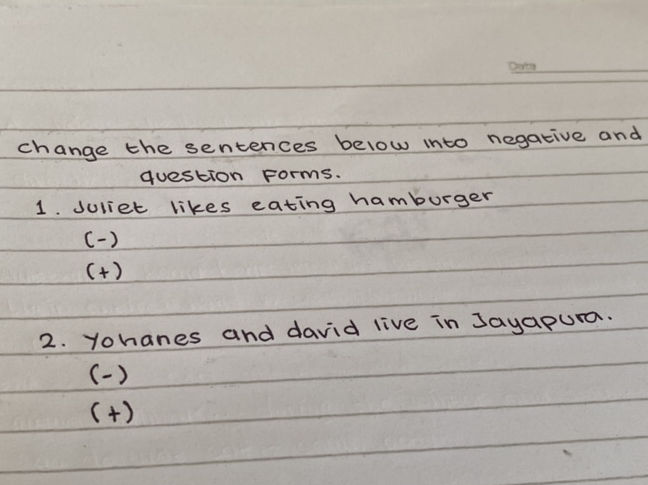 Date
change the sentences below into negative and
question forms.
1. Juliet likes eating hamburger
(-)
(+)
2. Yohanes and david live in Jayapura.
(-)
(+)